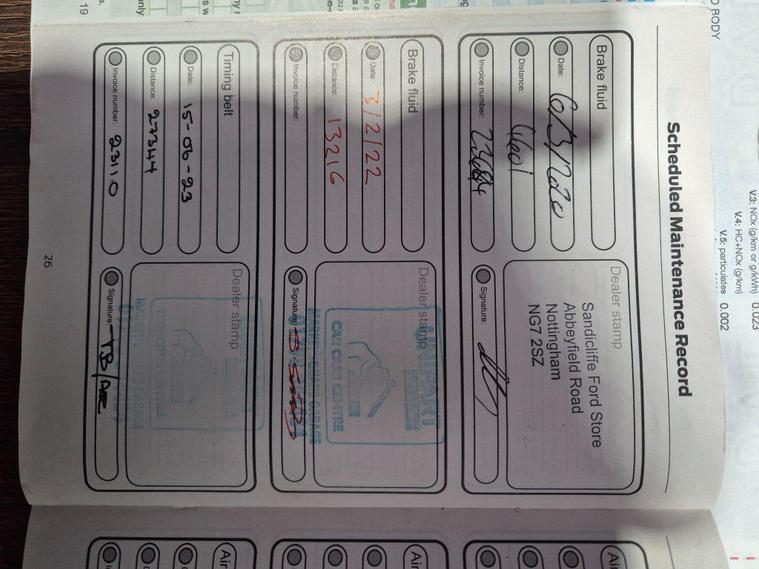 Scheduled Maintenance Record
Brake fluid
Date: 6/3/2020
Distance: 4601
Invoice number:
Dealer stamp
Sandicliffe Ford Store
Abbeyfield Road
Nottingham
NG7 2SZ
Signature:
Brake fluid
Date: 3/2/22
Distance: 13216
Invoice number:
Dealer stamp
CAR CARE CENTRE
Signature:
Timing belt
Date: 15-06-23
Distance: 27344
Invoice number: 23110
Dealer stamp
Signature: TB/
26
V.3: NOx (g/km or g/kWh) 0.023
V.4: HC+NOx (g/km)
V.5: particulates 0.002
BODY
19
only